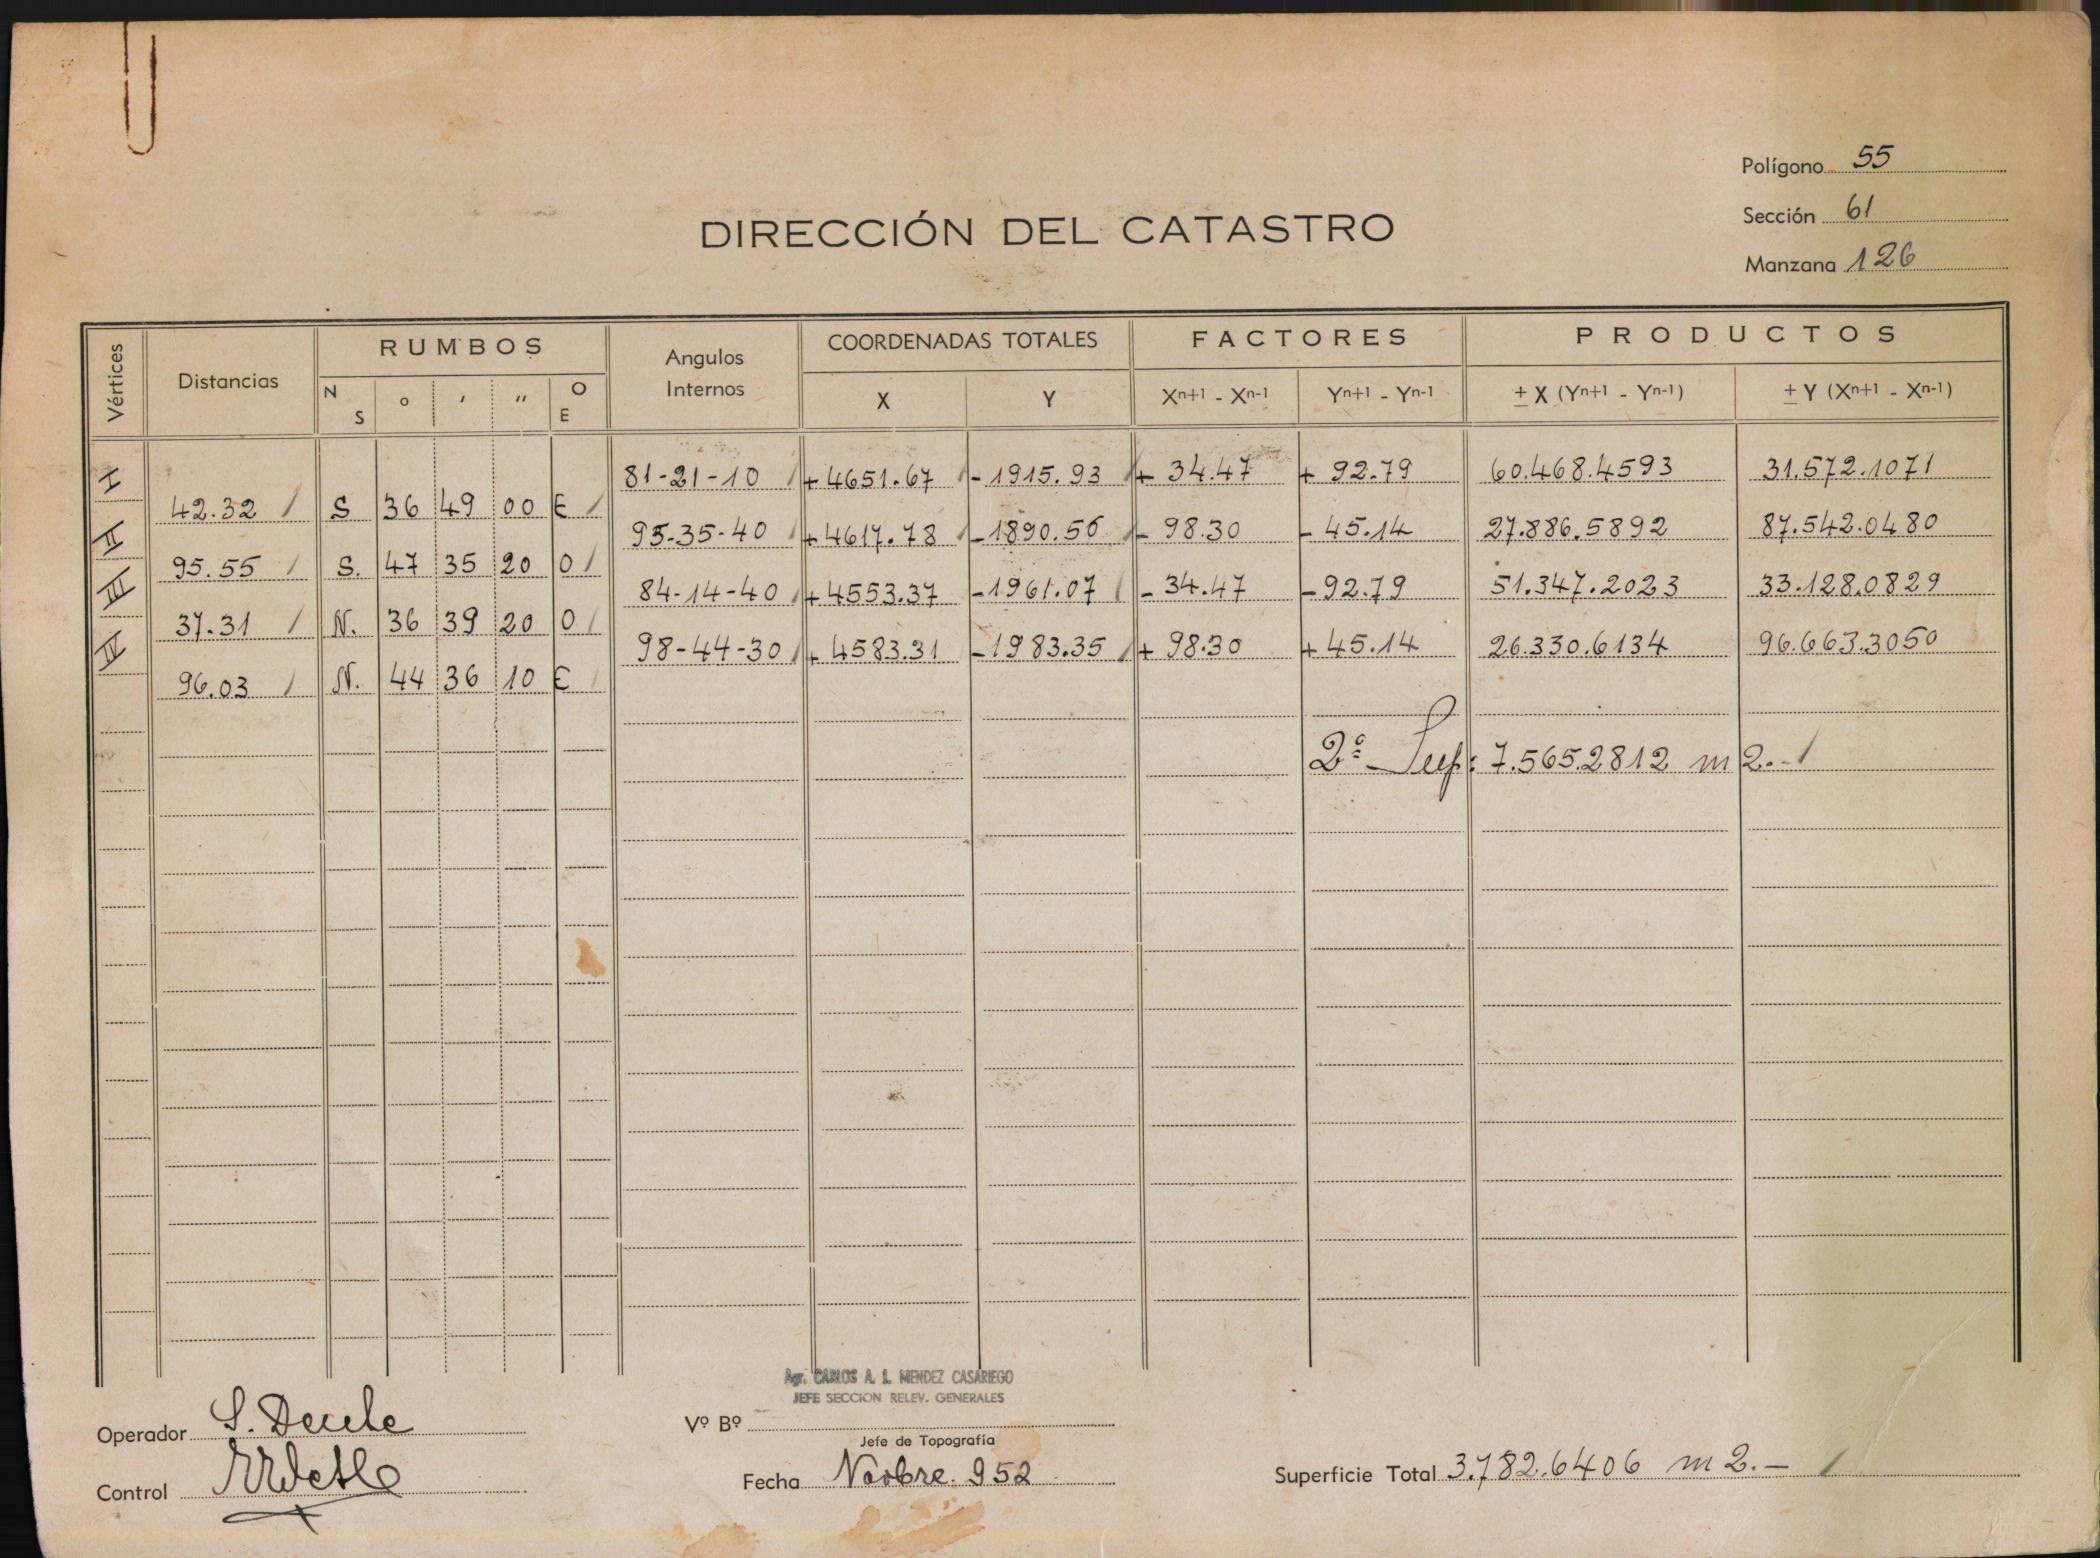 Polígono 55
Sección 61
Manzana 126
DIRECCIÓN DEL CATASTRO
Vértices Distancias RUMBOS Angulos Internos COORDENADAS TOTALES FACTORES PRODUCTOS
N S ° ′ ″ O E X Y Xn+1 - Xn-1 Yn+1 - Yn-1 ± X (Yn+1 - Yn-1) ± Y (Xn+1 - Xn-1)
I 81-21-10 +4651.67 -1915.93 + 34.47 + 92.79 60.468.4593 31.572.1071
42.32 S 36 49 00 E
II 95-35-40 +4617.78 -1890.56 - 98.30 - 45.14 27.886.5892 87.542.0480
95.55 S. 47 35 20 O
III 84-14-40 +4553.37 -1961.07 - 34.47 -92.79 51.347.2023 33.128.0829
37.31 N. 36 39 20 O
IV 98-44-30 + 4583.31 -1983.35 + 98.30 +45.14 26.330.6134 96.663.3050
96.03 N. 44 36 10 E
2ª Sup: 7.565.2812 m2.-
Agr. CARLOS A. L. MENDEZ CASARIEGO
JEFE SECCION RELEV. GENERALES
Operador
Vº Bº
Jefe de Topografía
Control
Fecha Novbre. 952
Superficie Total 3.782.6406 m2.-